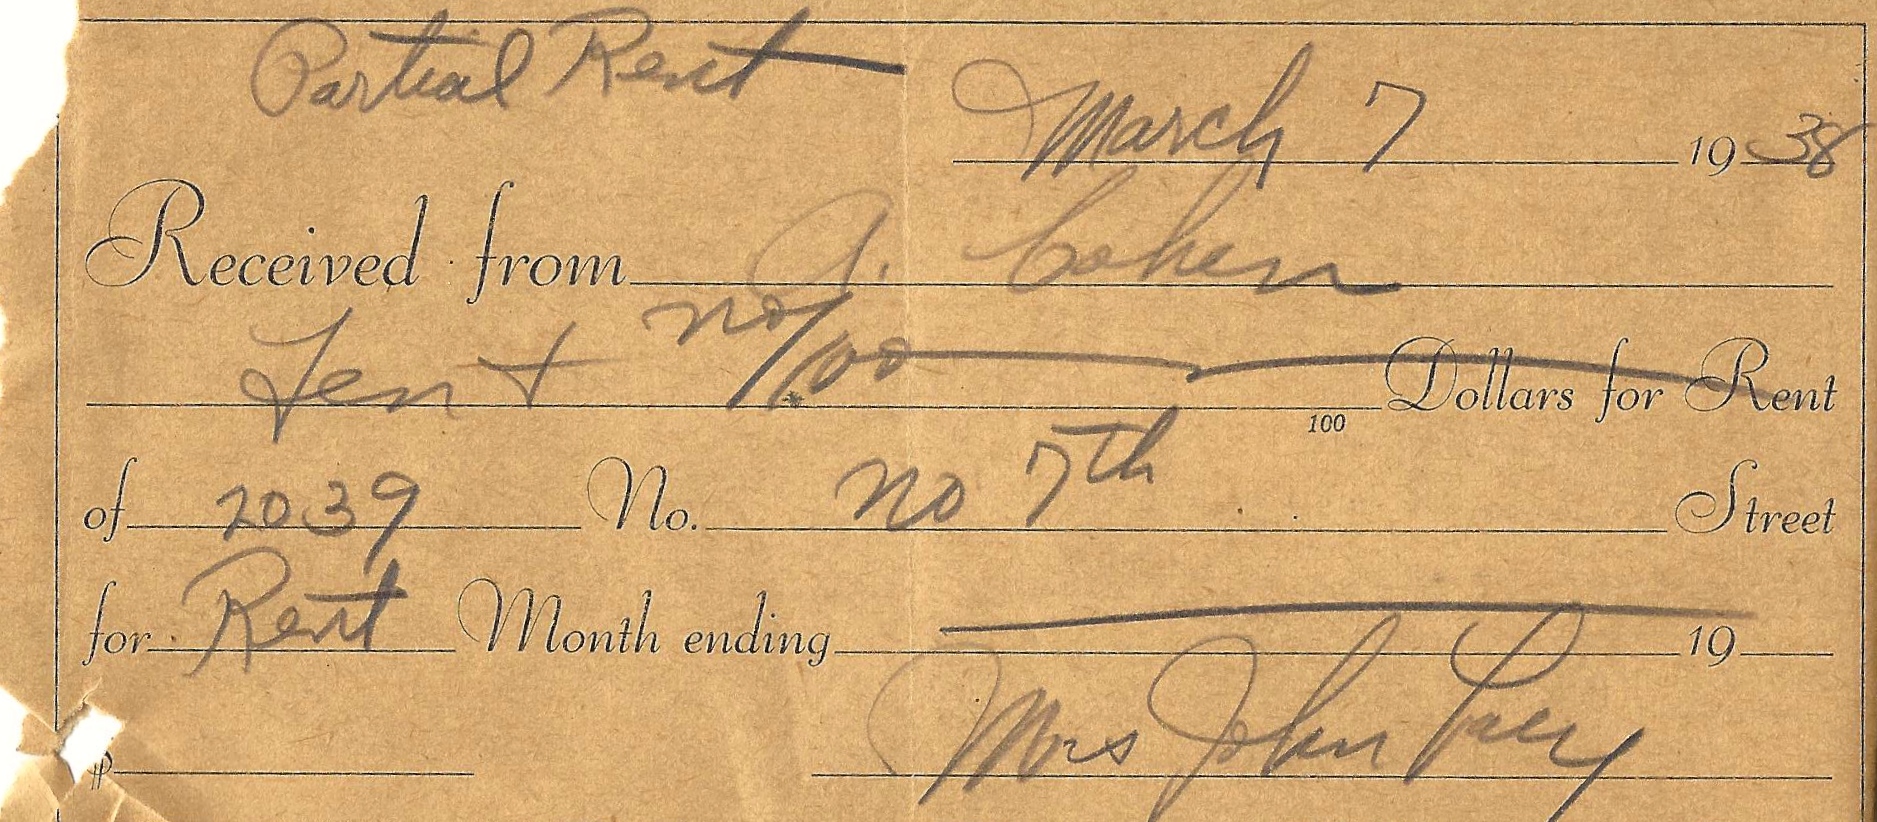 Partial Rent
March 7 1938
Received from A. Cohen
Ten + no/100 100 Dollars for Rent
of 2039 No. no 7th Street
for Rent Month ending 19
$ Mrs John